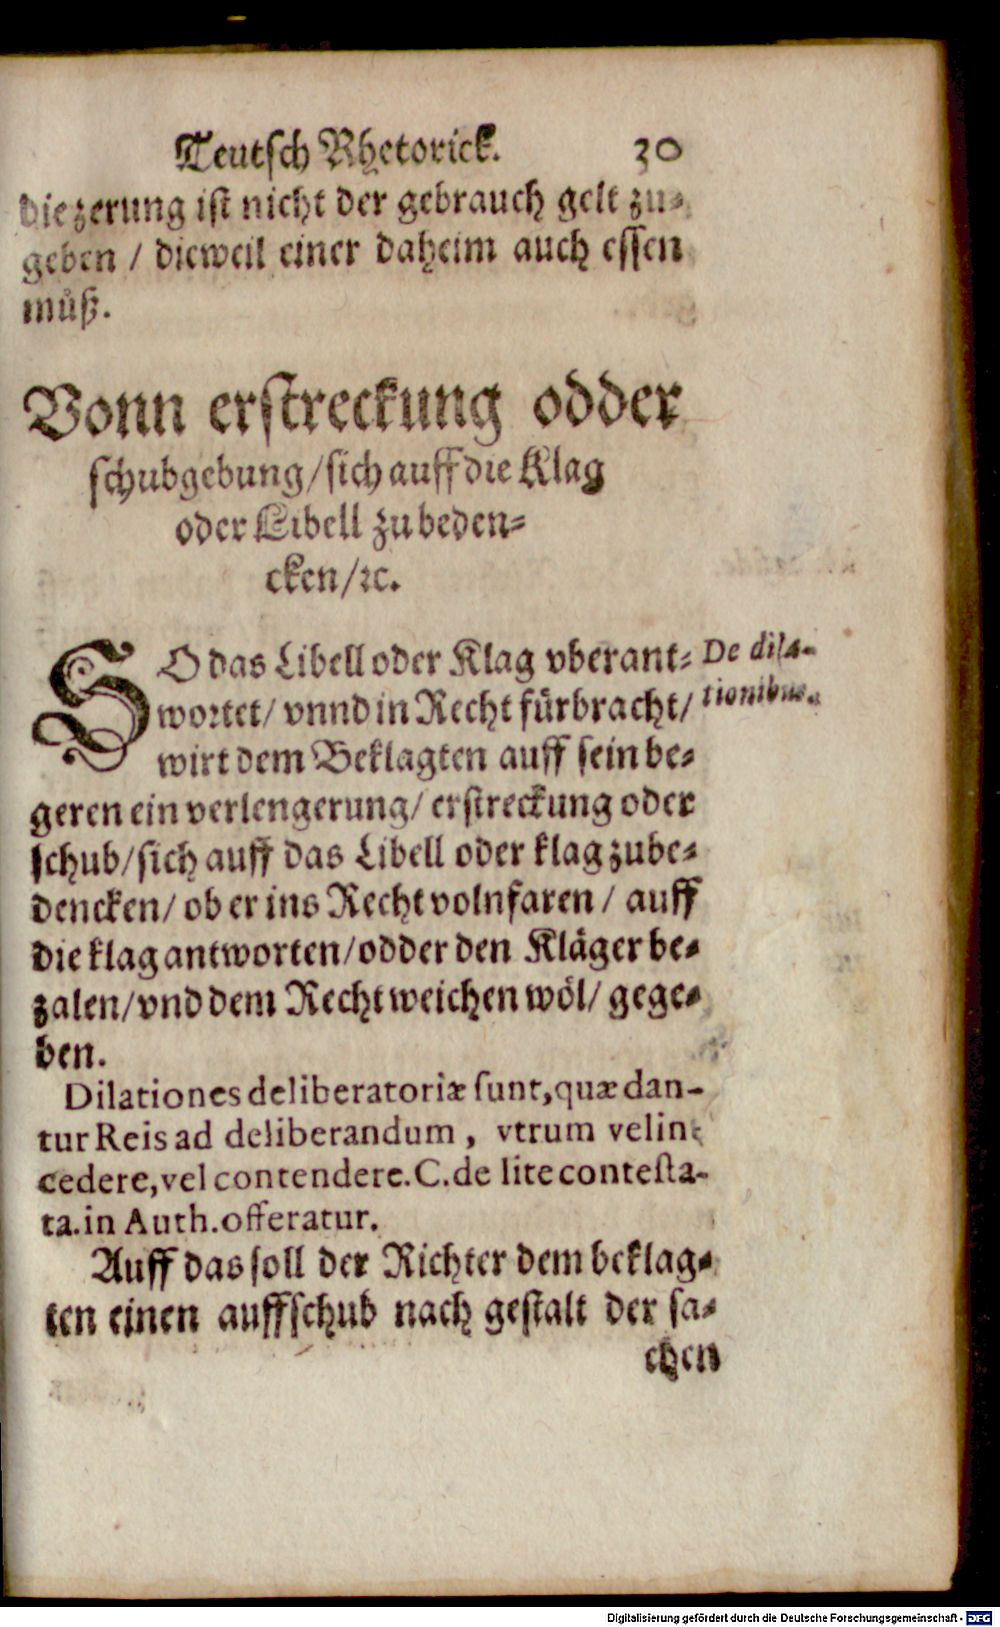 Teutsch Rhetorick. 30
die zerung ist nicht der gebrauch gelt zu-
geben / dieweil einer daheim auch essen
můß.
Vonn erstreckung odder
schubgebung/sich auff die Klag
oder Libell zu beden-
cken/ꝛc.
SO das Libell oder Klag vberant-
wortet/ vnnd in Recht fürbracht/
wirt dem Beklagten auff sein be-
geren ein verlengerung/ erstreckung oder
schub/sich auff das Libell oder klag zube-
dencken/ ob er ins Recht volnfaren / auff
die klag antworten/odder den Kläger be-
zalen/vnd dem Recht weichen wöl/ gege-
ben.
De dila-
tionibus.
Dilationes deliberatoriæ sunt, quæ dan-
tur Reis ad deliberandum, vtrum velint
cedere, vel contendere. C. de lite contesta-
ta. in Auth. offeratur.
Auff das soll der Richter dem beklag-
ten einen auffschub nach gestalt der sa-
chen
Digitalisierung gefördert durch die Deutsche Forschungsgemeinschaft - DFG